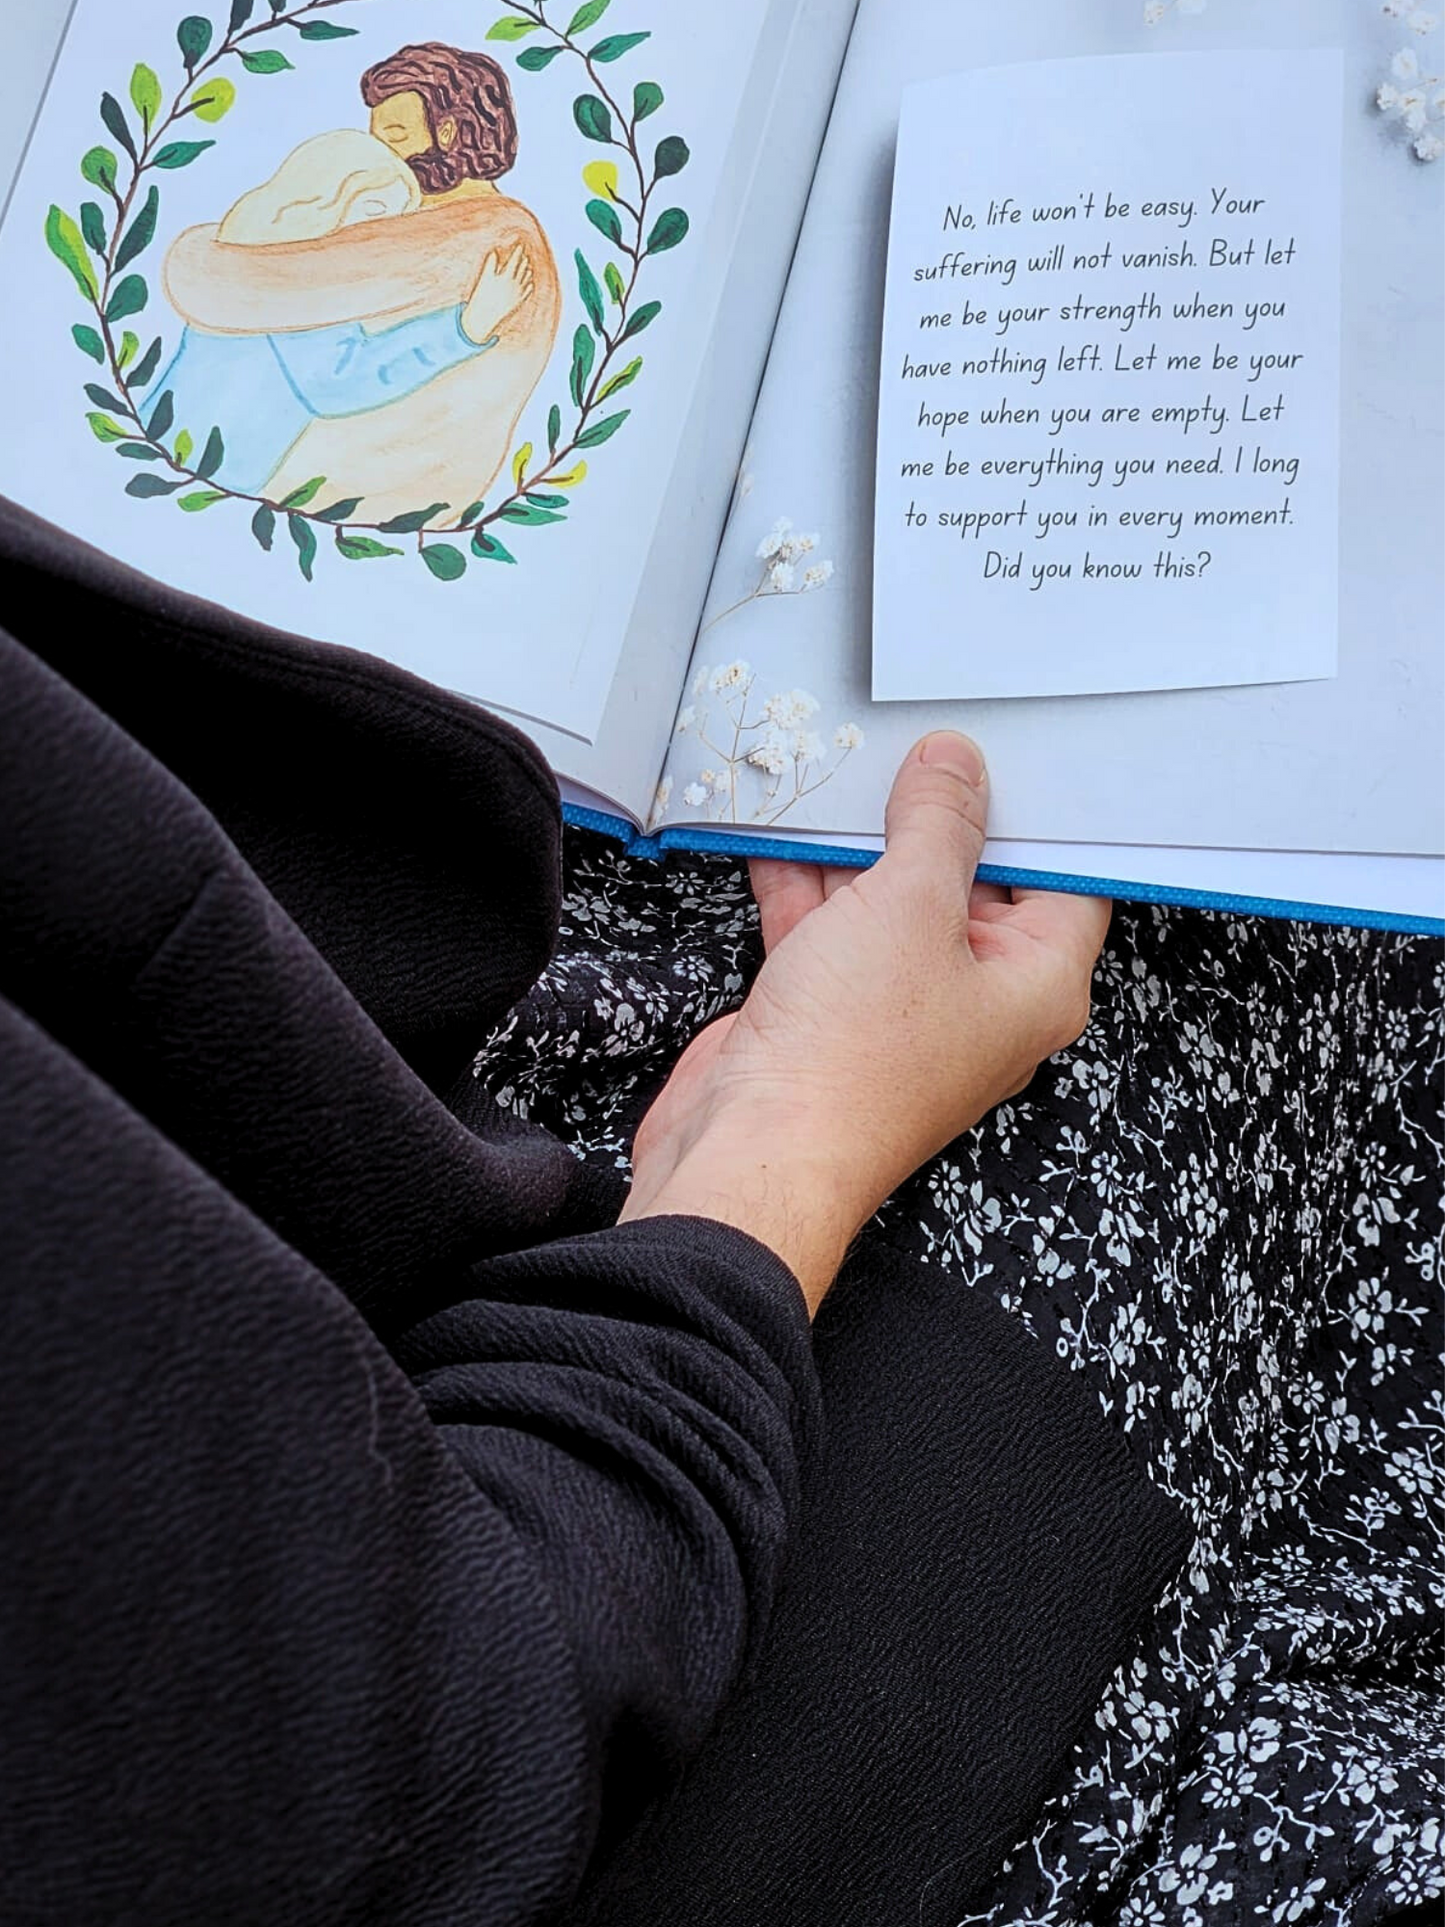 No, life won't be easy. Your
suffering will not vanish. But let
me be your strength when you
have nothing left. Let me be your
hope when you are empty. Let
me be everything you need. I long
to support you in every moment.
Did you know this?